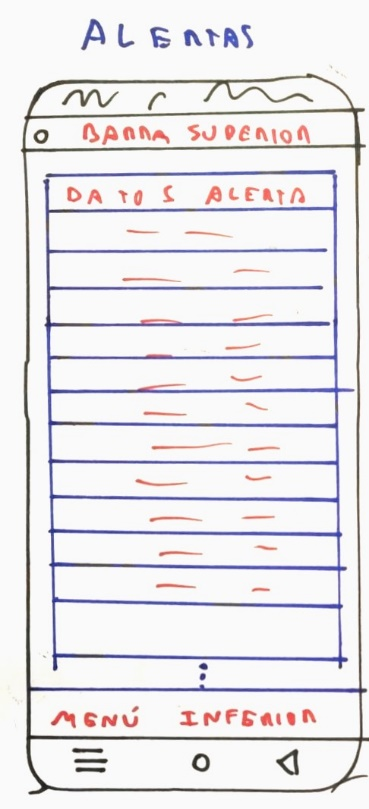 ALERTAS
BARRA SUPERIOR
DATOS ALERTA
MENÚ INFERIOR